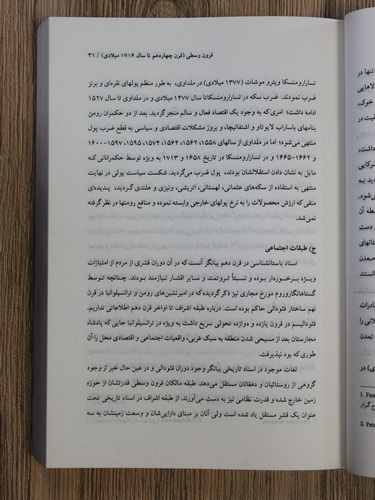 قرون وسطی (قرن چهاردهم تا سال ۱۷۱۶ میلادی) / ۳۱
تسارارومنسکا ویترو موشات (۱۳۷۷ میلادی) در ملداوی، به طور منظم پولهای نقره‌ای و برنز
ضرب نمودند. ضرب سکه در تسارارومنسکاتا سال ۱۴۷۷ میلادی و در ملداوی تا سال ۱۵۲۷
ادامه داشت؛ امری که به وجود یک اقتصاد فعال و سالم منجر گردید. بعد از دو حکمران رومن
بنامهای باساراب لایوتاو و اشتفانیچا، و بروز مشکلات اقتصادی و سیاسی به قطع ضرب پول
منتهی می‌شود؛ اما در ملداوی از سالهای ۱۵۵۸، ۱۵۶۲، ۱۵۷۳، ۱۵۹۵، ۱۵۹۷-۱۶۰۰
و ۱۶۶۲-۱۶۶۵ و در تسارارومنسکا در تاریخ ۱۶۵۸ و ۱۷۱۳ به ویژه توسط حکمرانانی که
مایل به نشان دادن استقلالشان بودند، پول ضرب می‌گردید. شکست سیاست پولی در نهایت
منتهی به استفاده از سکه‌های عثمانی، لهستانی، اتریشی، ونیزی و هلندی گردید، پدیده‌ای
منفی که ارزش محصولات را به نرخ پولهای خارجی وابسته نموده و منافع رومنها در نظر گرفته
نمی‌شد.
ج) طبقات اجتماعی
اسناد باستانشناسی در قرن دهم بیانگر آنست که در آن دوران قشری از مردم از امتیازات
ویژه برخوردار بوده و نسبتاً ثروتمند و سایر اقشار نیازمند بودند. چنانچه توسط
گستاهانگاروروم مورخ مجاری نیز ذکر گردیده که در امیرنشین‌های رومن و ترانسیلوانیا در قرن
نهم ساختار فئودالی حاکم بوده است. درباره طبقه اشراف تا اواخر قرن دهم اطلاعاتی نداریم.
فئودالیسم در قرون یازده و دوازده تحولی سریع داشت به ویژه در ترانسیلوانیا جایی که پادشاه
مجارستان بعد از مسیحی شدن منطقه به سبک غربی، واقعیات اجتماعی و اقتصادی محل را آن
طوری که بود نپذیرفت.
لغات موجود در اسناد تاریخی بیانگر وجود دوران فئودالی و در عین حال خبر از وجود
گروهی از روستائیان و دهقانان مستقل می‌دهد. طبقه مالکان قرون وسطی قدرتشان از حوزه
زمین خارج شده و قدرت نظامی نیز به دست می‌آورند. از طبقه اشراف در اسناد تاریخی تحت
عنوان یک قشر مستقل یاد شده است ولی آنان بر مبنای دارایی‌شان و وسعت زمینشان به سه